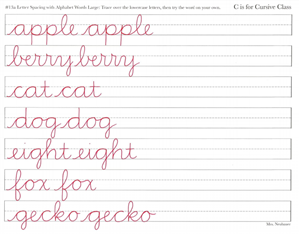 #13a Letter Spacing with Alphabet Words Large: Trace over the lowercase letters, then try the word on your own. C is for Cursive Class
apple apple
berry berry
cat cat
dog dog
eight eight
fox fox
gecko gecko